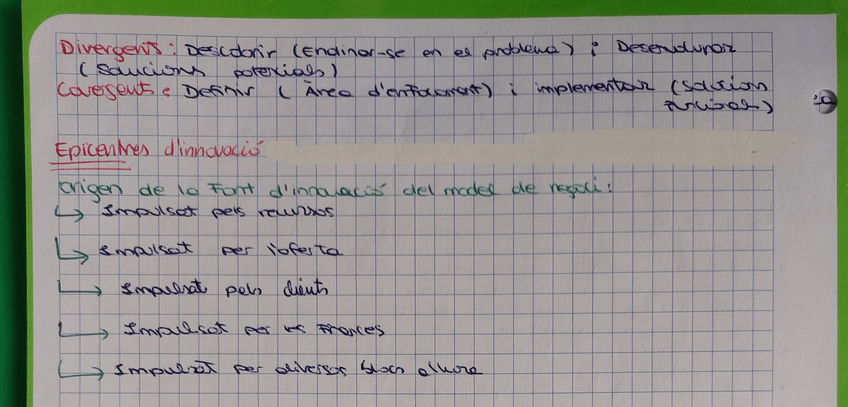 Divergents: Descobrir (Endinsar-se en el problema) i Desenvolupar
(solucions potencials)
Convergent: Definir (Àrea d'enfocament) i implementar (solucion
funcionals)
Epicentres d'innovació
origen de la Font d'innovació del model de negoci:
↳ Impulsat pels recursos
↳ Impulsat per l'oferta
↳ Impulsat pels clients
↳ Impulsat per les finances
↳ Impulsat per diversos blocs alhora